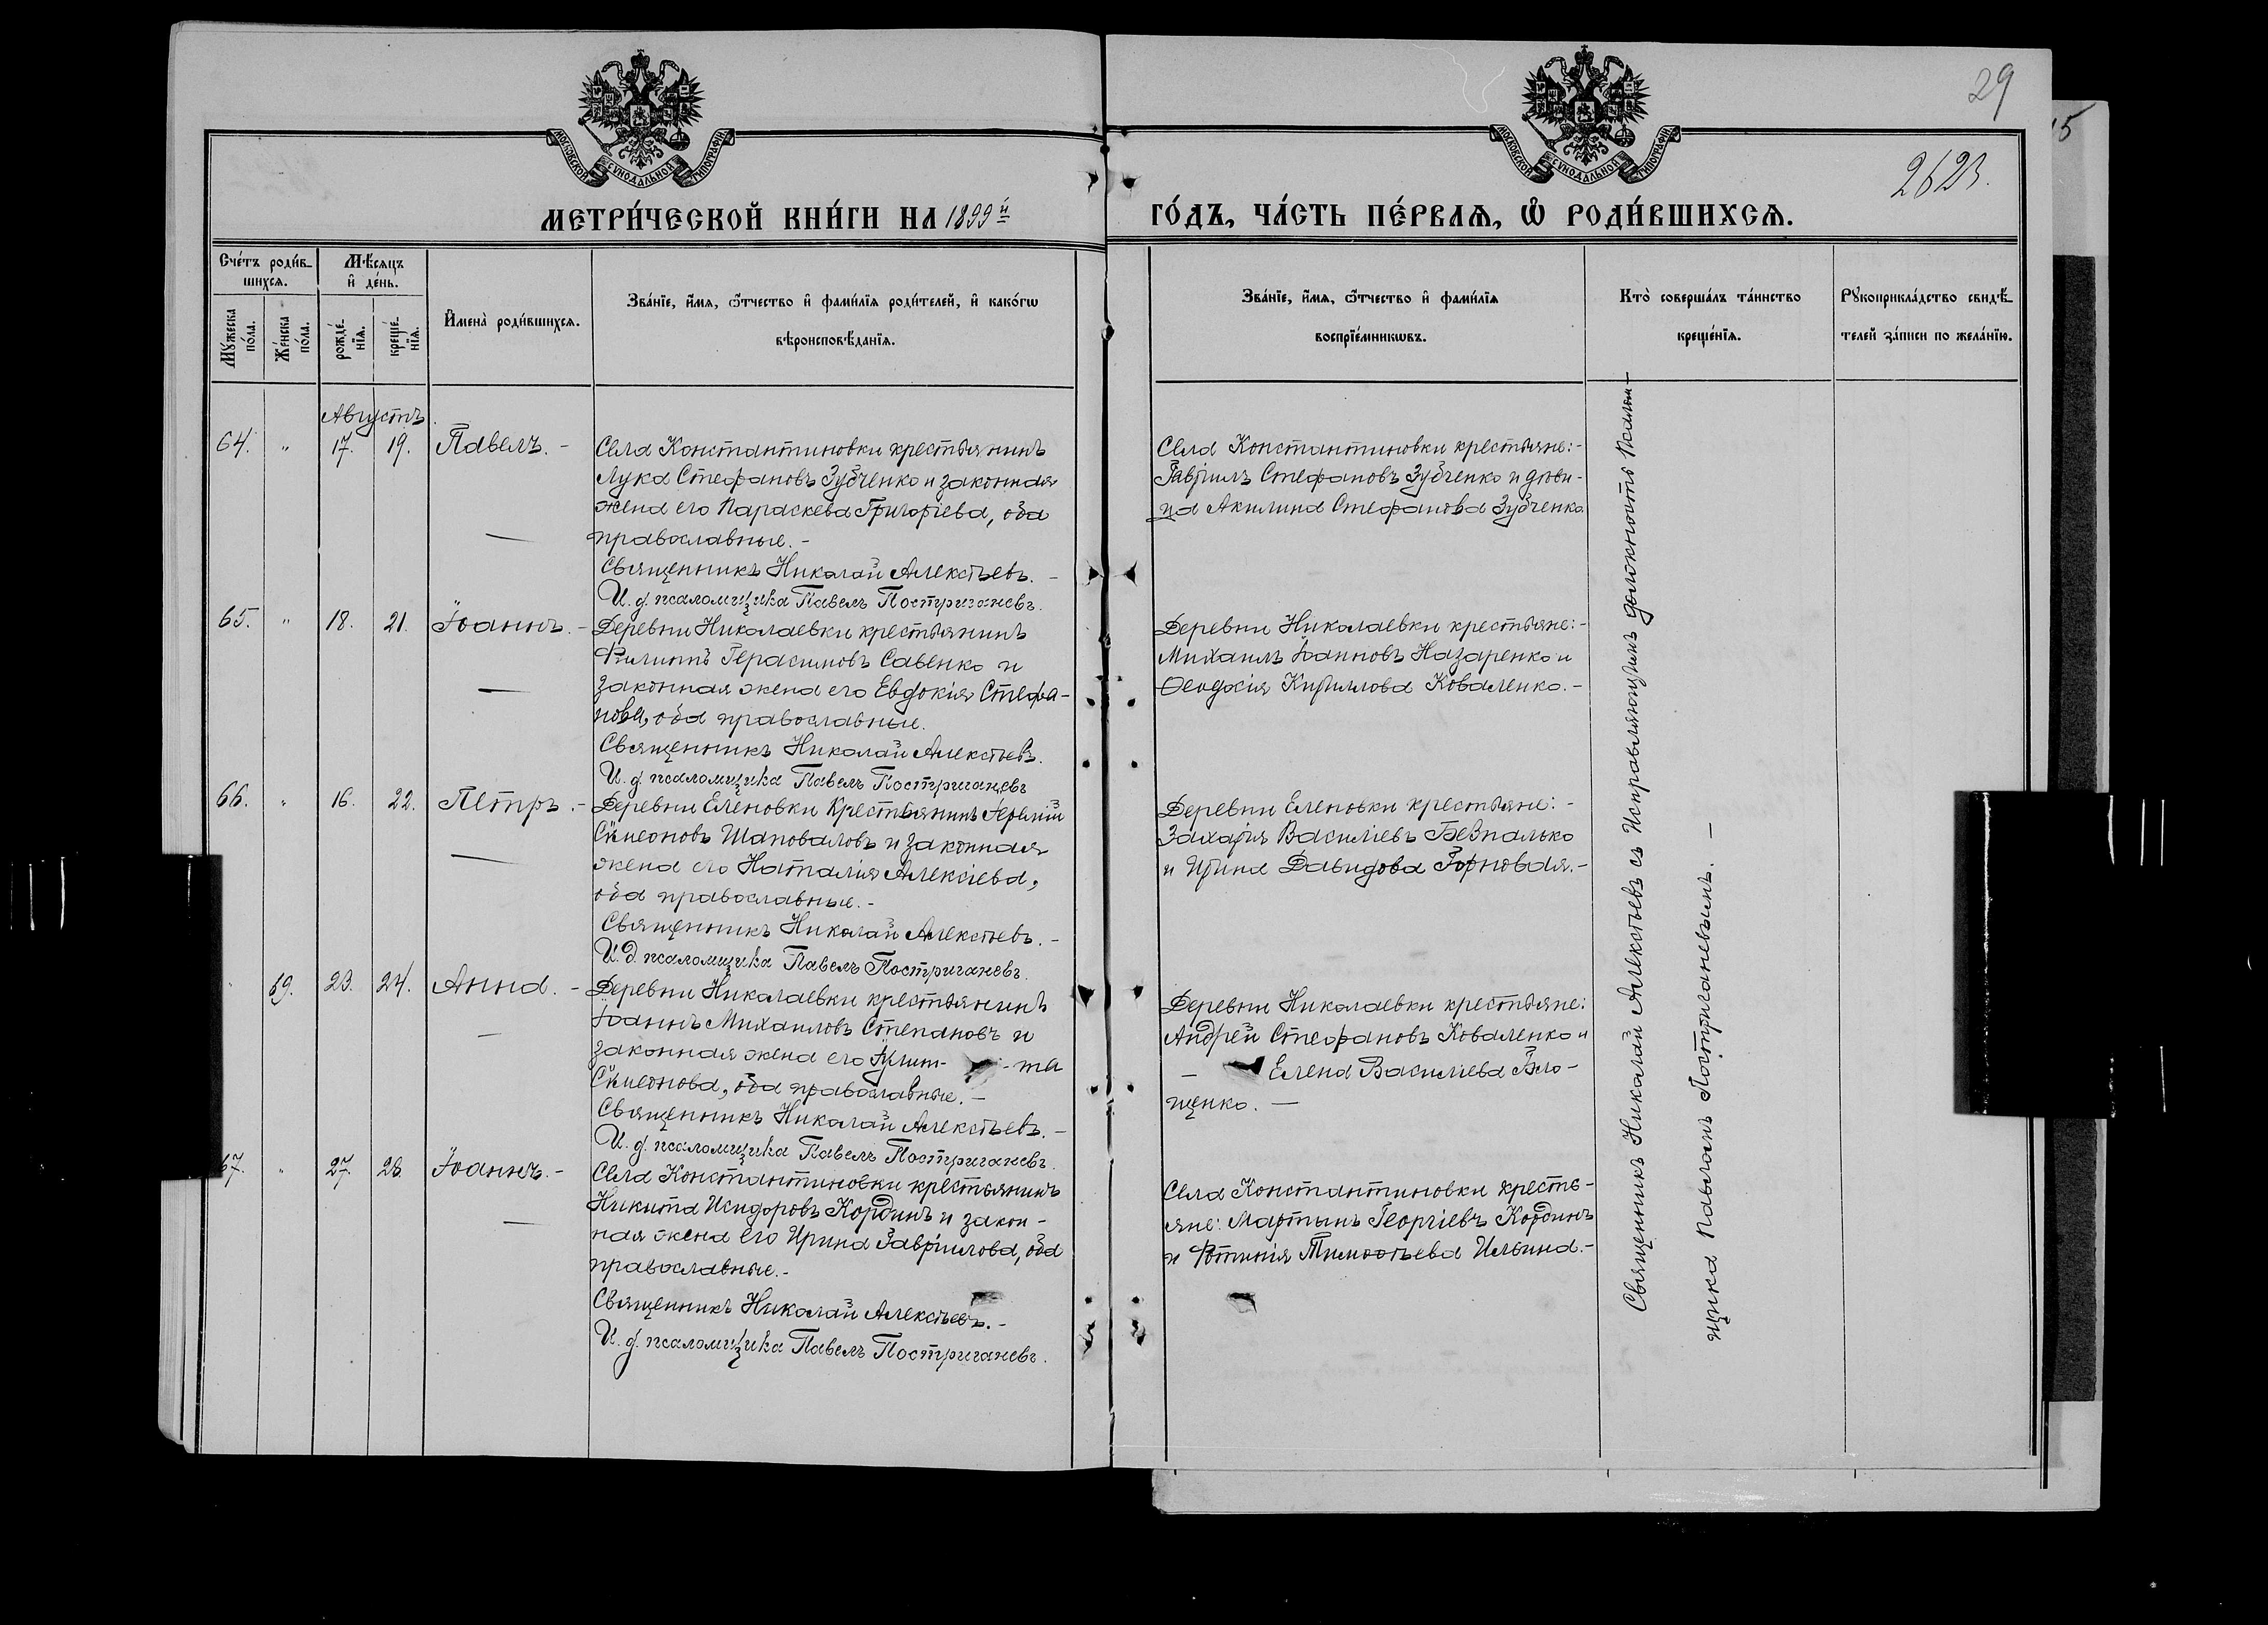 29
15
2623.
МОСКОВСКОЙ СѴНОДАЛЬНОЙ ТИПОГРАФІИ
МОСКОВСКОЙ СѴНОДАЛЬНОЙ ТИПОГРАФІИ
МЕТРИ́ЧЕСКОЙ КНИ́ГИ НА 1899й
ГО́ДЪ, ЧА́СТЬ ПЕ́РВАѦ, Ѽ РОДИ́ВШИХСѦ.
Сче́тъ роди́в-
шихсѧ.
Мꙋ́жеска
по́ла.
Же́нска
по́ла.
Мѣ́сяцъ
и҆ де́нь.
рожде́-
нїѧ.
креще́-
нїѧ.
И҆мена̀ роди́вшихсѧ.
Зва́нїе, и҆́мѧ, ѻ҆́тчество и҆ фами́лїѧ роди́телей, и҆ како́гѡ
вѣроисповѣ́данїѧ.
Зва́нїе, и҆́мѧ, ѻ҆́тчество и҆ фами́лїѧ
воспрїе́мникѡвъ.
Кто̀ соверша́лъ та́инство
креще́нїѧ.
Рꙋкоприкла́дство свидѣ́-
телей за́писи по жела́нїю.
Августъ.
64. " 17. 19. Павелъ. -
Села Константиновки крестьянинъ
Лука Стефановъ Зубченко и законная
жена его Параскева Григоріева, оба
православные. -
Священникъ Николай Алексѣевъ. -
И. д. псаломщика Павелъ Постригачевъ.
Села Константиновки крестьяне: -
Гавріилъ Стефановъ Зубченко и дѣви-
ца Акилина Стефанова Зубченко
65. " 18. 21. Іоаннъ. -
Деревни Николаевки крестьянинъ
Филиппъ Герасимовъ Савенко и
законная жена его Евдокія Стефа-
нова, оба православные.
Священникъ Николай Алексѣевъ.
И. д. псаломщика Павелъ Постригачевъ
Деревни Николаевки крестьяне: -
Михаилъ Іоанновъ Назаренко и
Ѳеодосія Кириллова Коваленко. -
66. " 16. 22. Петръ. -
Деревни Еленовки крестьянинъ Іеремій
Сѵмеоновъ Шаповаловъ и законная
жена его Наталія Алексіева,
оба православные. -
Священникъ Николай Алексѣевъ. -
И. д. псаломщика Павелъ Постригачевъ.
Деревни Еленовки крестьяне: -
Захарія Василіевъ Безпалько
и Ирина Давидова Горновая. -
" 69. 23. 24. Анна. -
Деревни Николаевки крестьянинъ
Іоаннъ Михаиловъ Степановъ и
законная жена его Іулит- та
Сѵмеонова, оба православные. -
Священникъ Николай Алексѣевъ. -
И. д. псаломщика Павелъ Постригачевъ.
Деревни Николаевки крестьяне:
Андрей Стефановъ Коваленко и
- Елена Василіева
щенко. -
67. " 27. 28. Іоаннъ. -
Села Константиновки крестьянинъ
Никита Исидоровъ Кординъ и закон-
ная жена его Ирина Гавріилова, оба
православные. -
Священникъ Николай Алексѣевъ. -
И. д. псаломщика Павелъ Постригачевъ.
Села Константиновки кресть-
яне: Мартынъ Георгіевъ Кординъ
и Фотинія Тимоѳеева Ильина. -
Священникъ Николай Алексѣевъ съ исправляющимъ должность псалом-
щика Павломъ Постригачевымъ. -